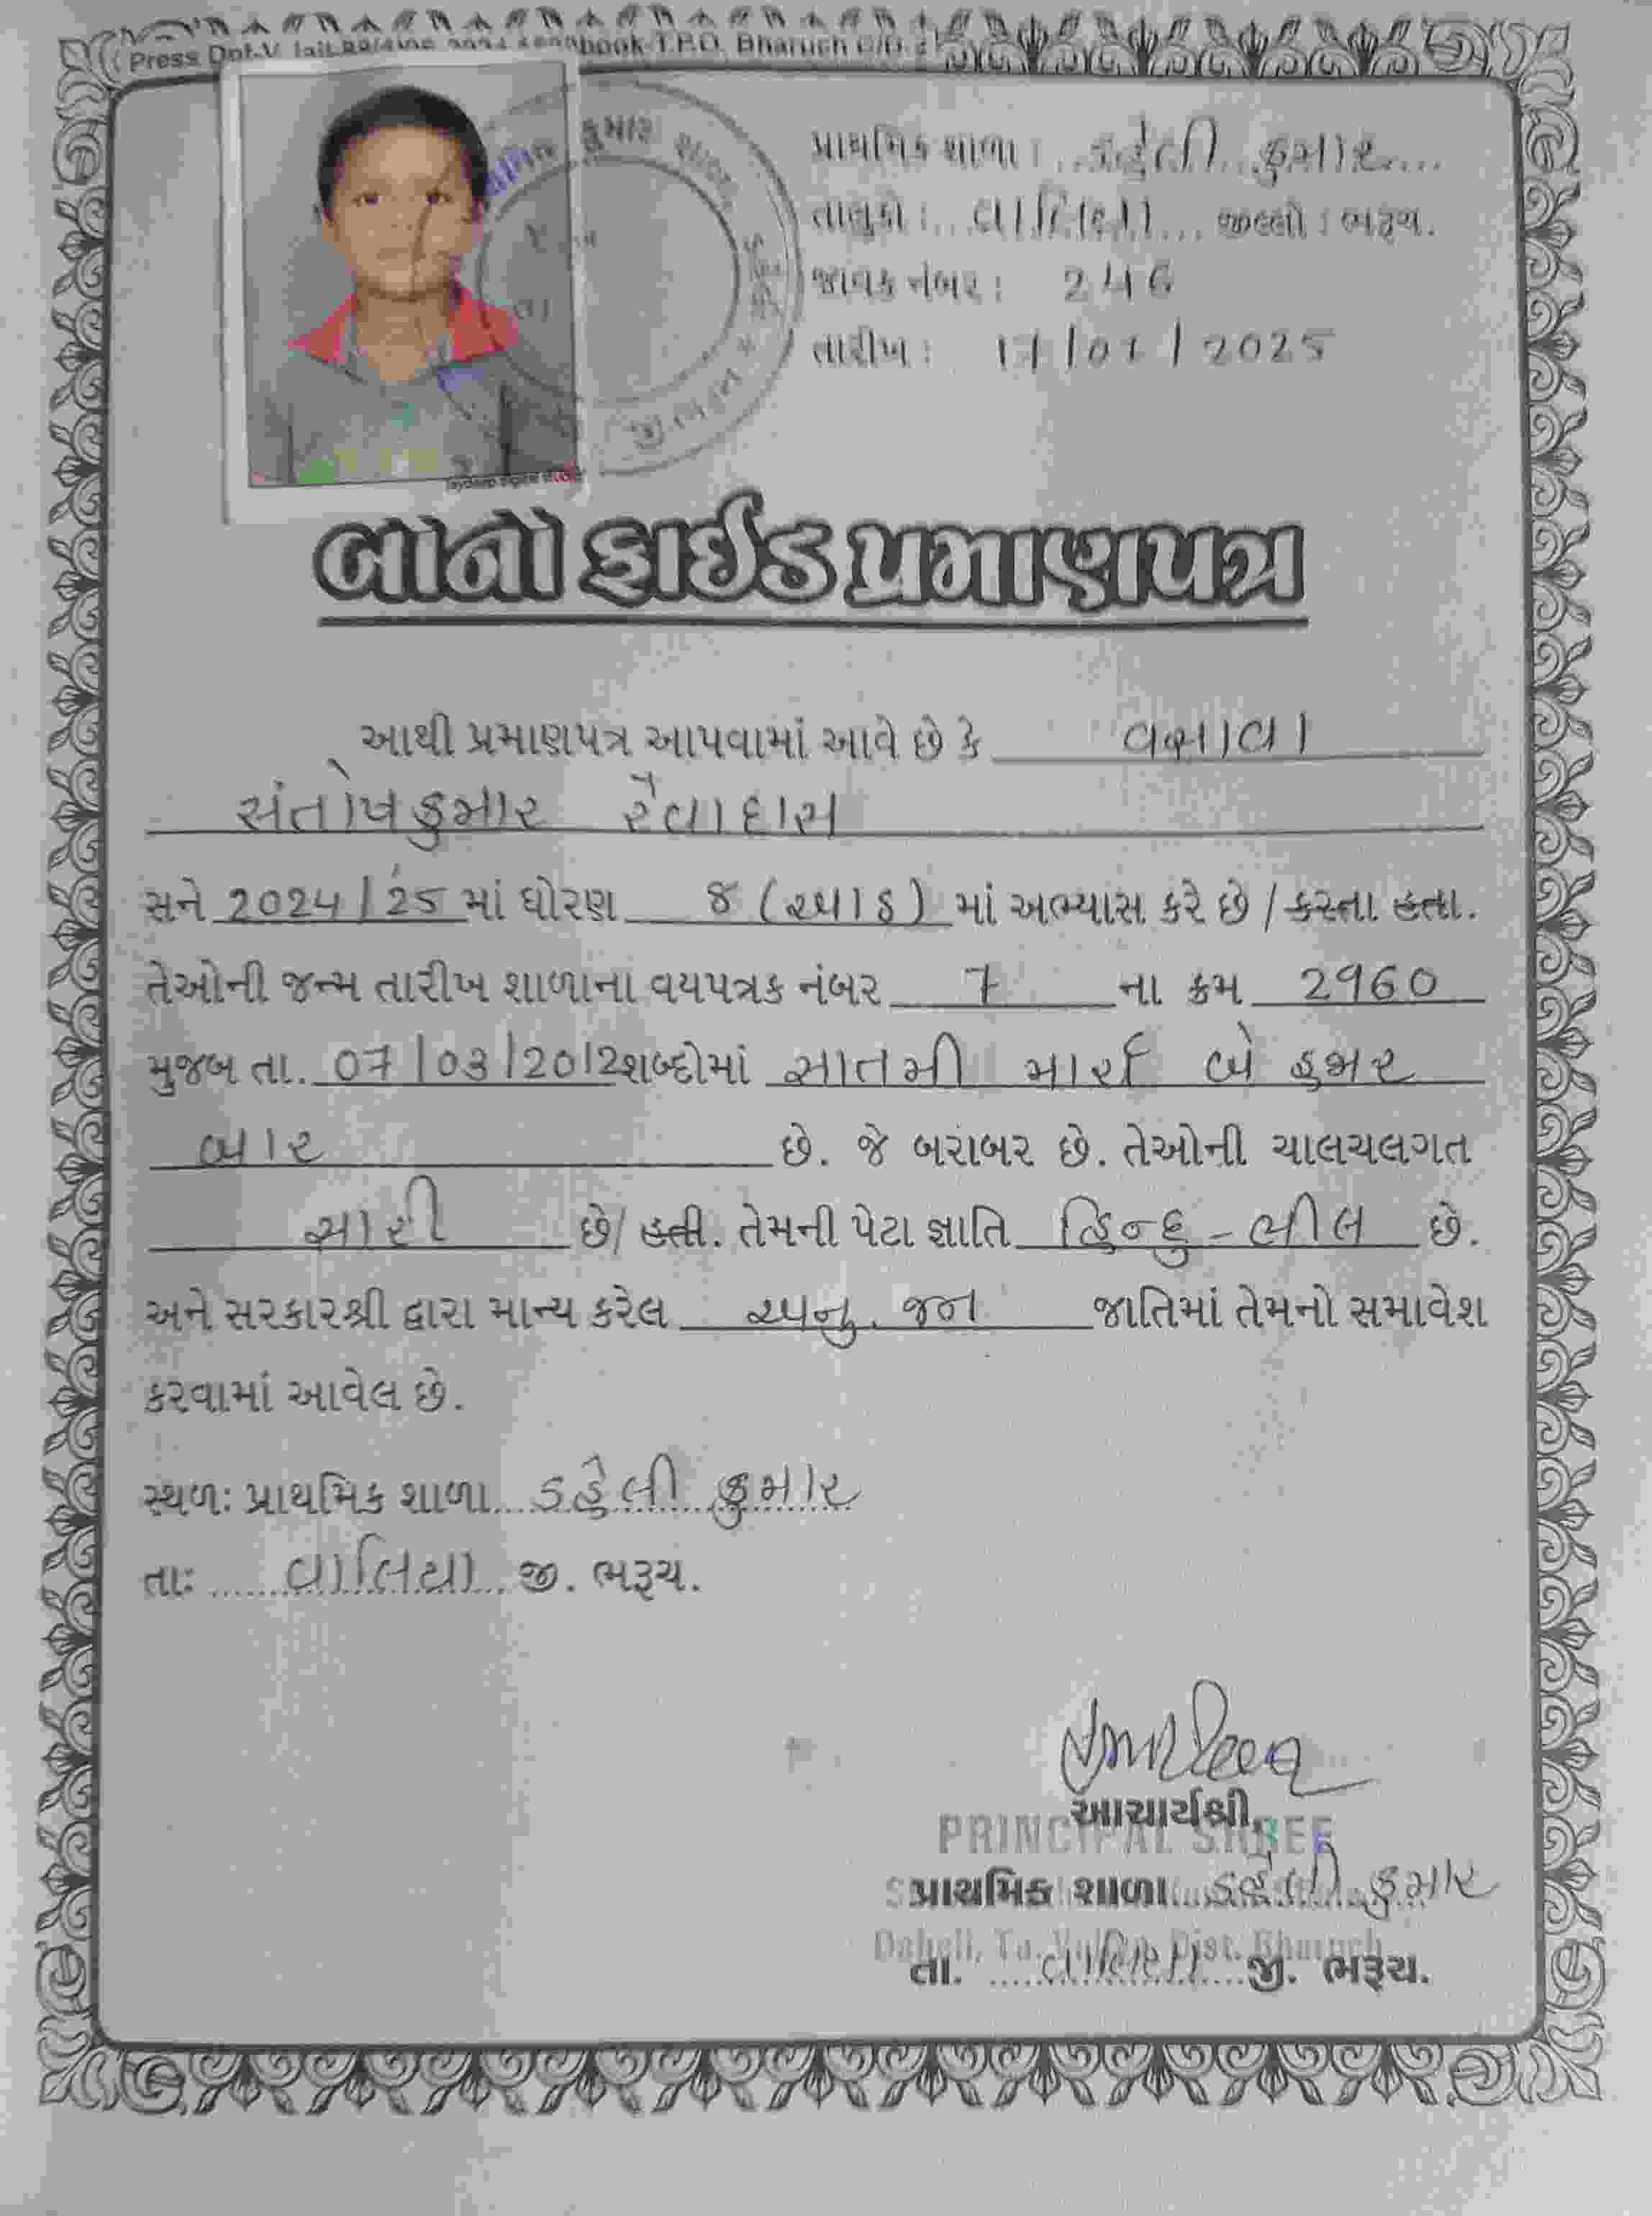 પ્રાથમિક શાળા : ડહેલી કુમાર
તાલુકો : વાલિયા જીલ્લો : ભરૂચ.
જાવક નંબર : 246
તારીખ : 17/01/2025
બોનોફાઈડ પ્રમાણપત્ર
આથી પ્રમાણપત્ર આપવામાં આવે છે કે વસાવા
સંતોષકુમાર રેવાદાસ
સને 2024/25 માં ધોરણ 8 (આઠ) માં અભ્યાસ કરે છે / કરતા હતા.
તેઓની જન્મ તારીખ શાળાના વયપત્રક નંબર 7 ના ક્રમ 2960
મુજબ તા. 07/03/2012 શબ્દોમાં સાતમી માર્ચ બે હજાર
બાર છે. જે બરાબર છે. તેઓની ચાલચલગત
સારી છે/ હતી. તેમની પેટા જ્ઞાતિ હિન્દુ - ભીલ છે.
અને સરકારશ્રી દ્વારા માન્ય કરેલ અનુ. જન જાતિમાં તેમનો સમાવેશ
કરવામાં આવેલ છે.
સ્થળ: પ્રાથમિક શાળા ડહેલી કુમાર
તા: વાલિયા જી. ભરૂચ.
આચાર્યશ્રી,
PRINCIPAL SHREE
પ્રાથમિક શાળા ડહેલી કુમાર
Daheli, Ta. Dist. Bharuch
તા. વાલિયા જી. ભરૂચ.